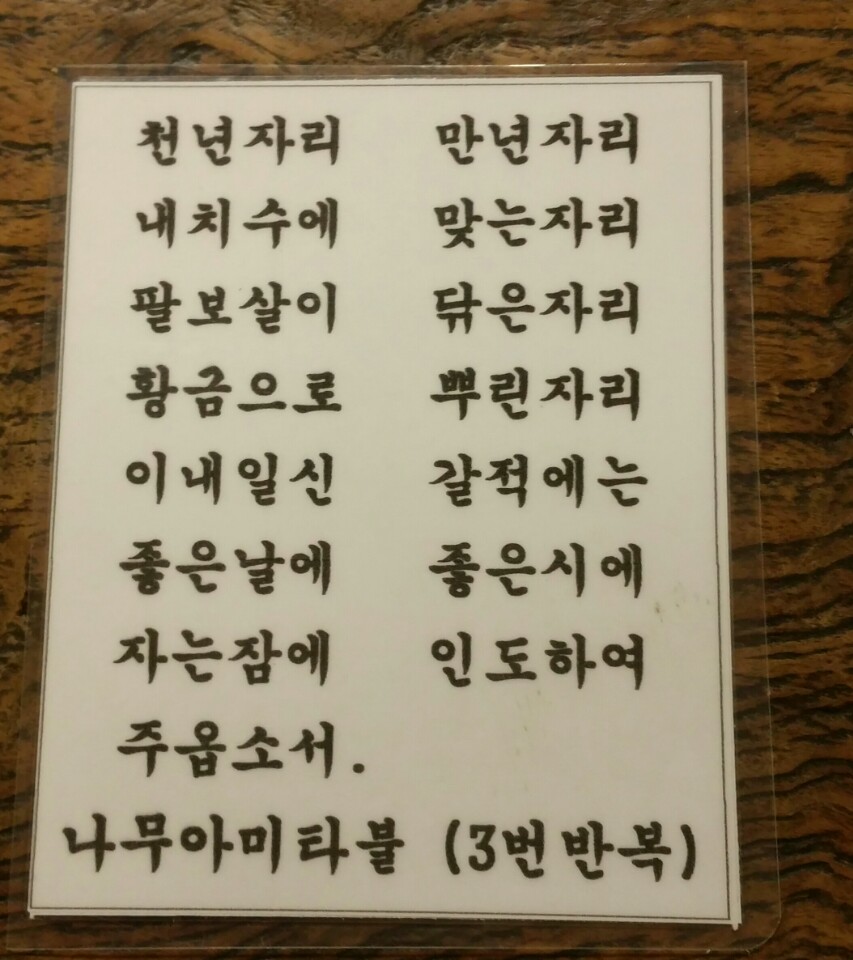 천년자리 만년자리
내치수에 맞는자리
팔보살이 닦은자리
황금으로 뿌린자리
이내일신 갈적에는
좋은날에 좋은시에
자는잠에 인도하여
주옵소서.
나무아미타불 (3번 반복)